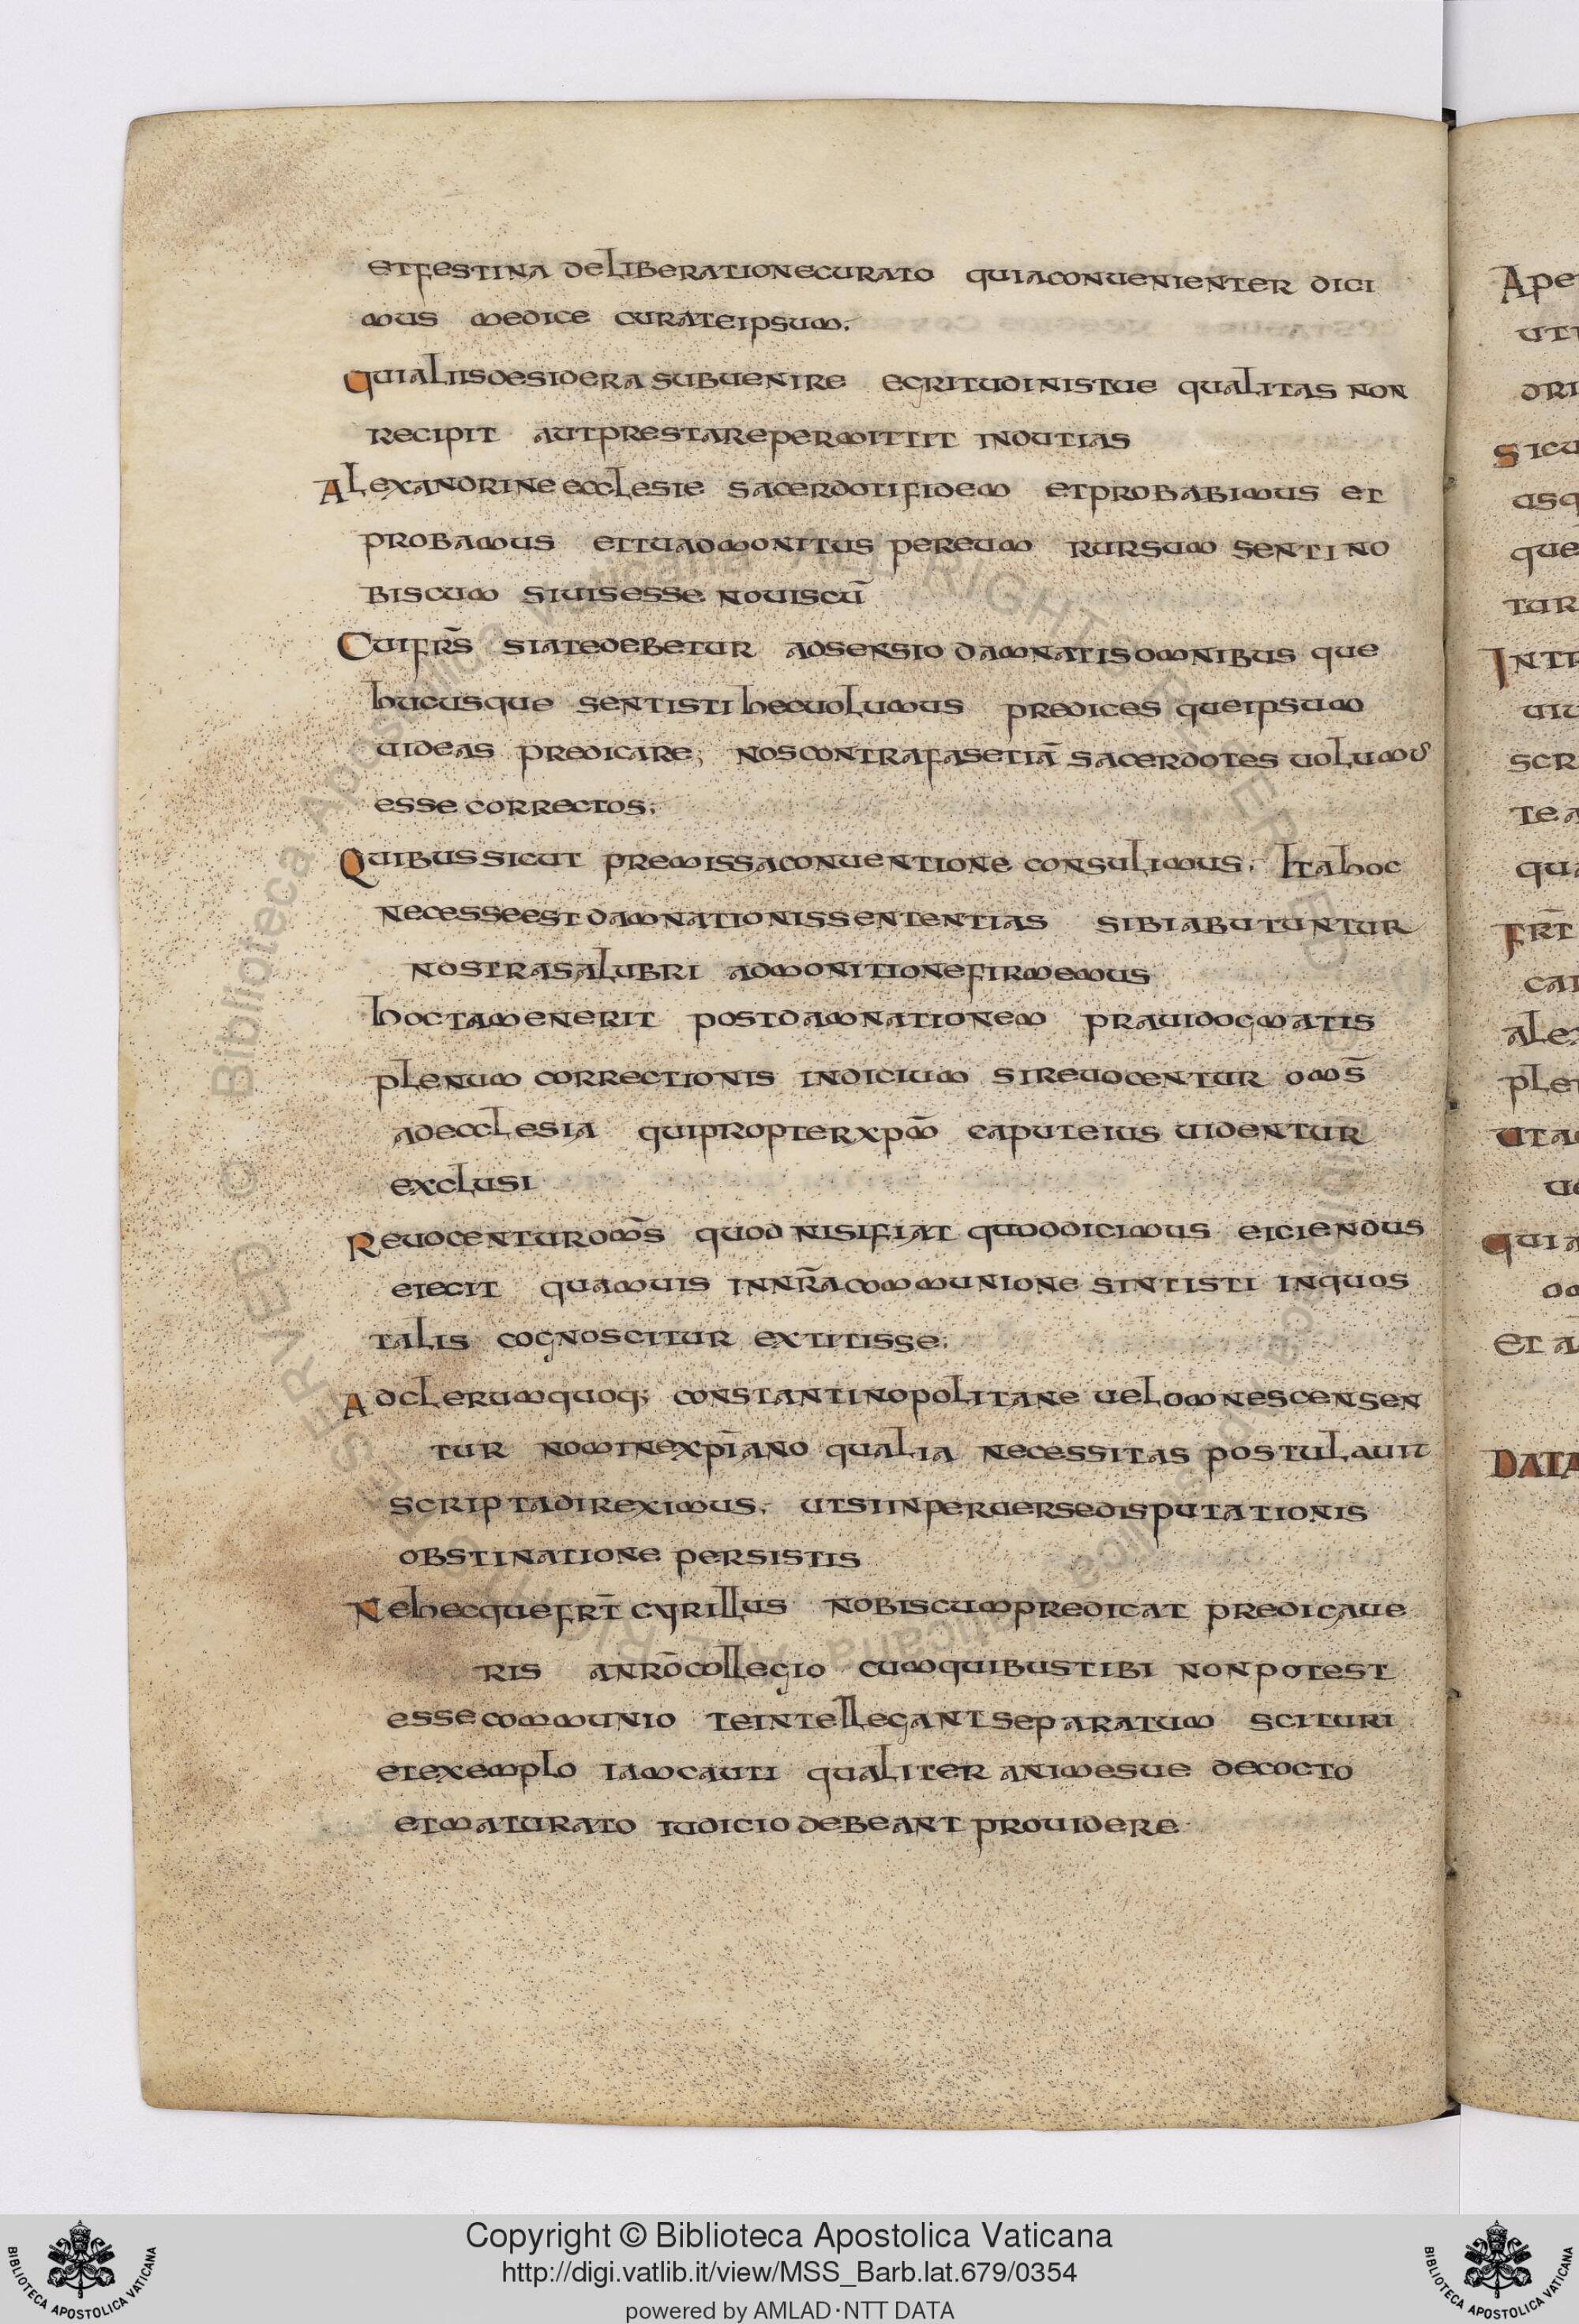 etfestina deliberationecurato quiaconuenienter dici
mus medice curateipsum;
quialiisdesidera subuenire egritudinistue qualitas non
recipit autprestarepermittit indutias
Alexandrine ecclesie sacerdotifidem etprobabimus et
probamus ettuadmonitus pereum rursum senti no
biscum siuisesse nouiscū
Cuifrs̄ siatedebetur adsensio damnatisomnibus que
hucusque sentisti hecuolumus predices queipsum
uideas predicare; noscontrafasetiā sacerdotes uolumus
esse correctos;
Quibussicut premissaconuentione consulimus; Itahoc
necesseest damnationissententias sibiabutuntur
nostrasalubri admonitionefirmemus
hoctamenerit postdamnationem prauidogmatis
plenum correctionis indicium sireuocentur oms̄
adecclesia quipropterxpm̄ caputeius uidentur
exclusi
Reuocenturom̄s quod nisifiat quoddicimus eiciendus
eiecit quamuis innr̄acommunione sintisti inquos
talis cognoscitur extitisse;
Adclerumquoq; constantinopolitane uelomnescensen
tur nominexpīano qualia necessitas postulauit
scriptadireximus; utsiinperuersedisputationis
obstinatione persistis
Nehecquefrt̄ cyrillus nobiscumpredicat predicaue
ris anrōcollegio cumquibustibi nonpotest
essecommunio teintellegantseparatum scituri
etexemplo iamcauti qualiter animesue decocto
etmaturato iudicio debeant prouidere
Ape
uti
dri
sicu
usq
que
tur
Intr
uiu
scr
te a
qua
frt̄
cat
alex
plen
uta
quia
et
DATA
© Biblioteca Apostolica Vaticana ALL RIGHTS RESERVED
Copyright © Biblioteca Apostolica Vaticana
http://digi.vatlib.it/view/MSS_Barb.lat.679/0354
powered by AMLAD·NTT DATA
BIBLIOTECA APOSTOLICA VATICANA
BIBLIOTECA APOSTOLICA VATICANA